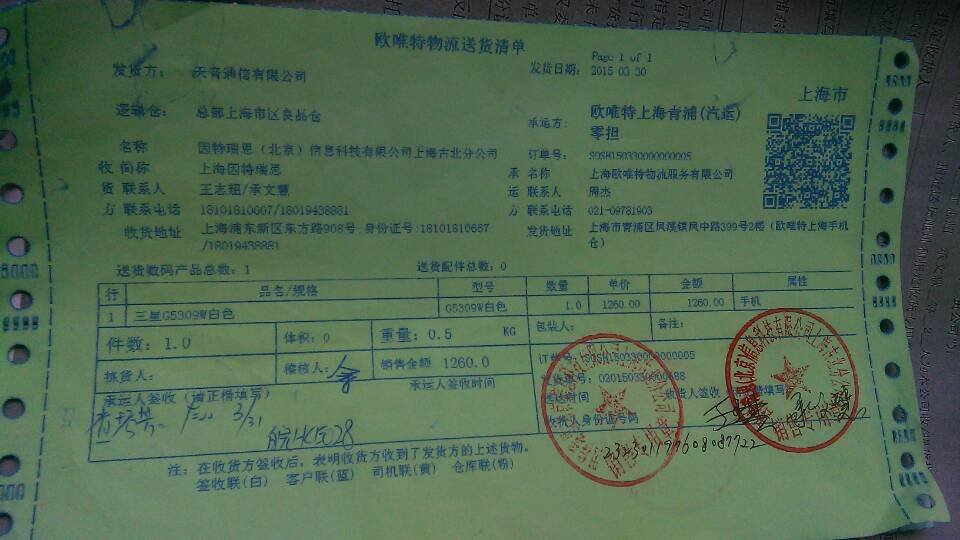 欧唯特物流送货清单
Page 1 of 1
发货方： 天音通信有限公司 发货日期： 2015 03 30
上海市
逻辑仓： 总部上海市区良品仓 承运方: 欧唯特上海青浦(汽运)零担
名称 因特瑞思（北京）信息科技有限公司上海古北分公司 订单号: SOSH150330000000005
收 简称 上海因特瑞思 承 名称 上海欧唯特物流服务有限公司
货 联系人 王志超/承文慧 运 联系人 周杰
方 联系电话 18101810667/18019438881 方 联系电话 021-09781903
收货地址 上海浦东新区东方路908号;身份证号:18101810667/18019438881 发货地址 上海市青浦区凤溪镇凤中路399号2楼（欧唯特上海手机仓）
送货数码产品总数：1 送货配件总数：0
行 品名/规格 型号 数量 单价 金额 属性
1 三星G5309W白色 G5309W白色 1.0 1260.00 1260.00 手机
件数：1.0 体积：0 重量：0.5 KG 包装人： 备注：
拣货人： 稽核人： 销售金额 1260.0 订单号：SOSH150330000000005
承运人签收（请正楷填写） 承运人签收时间
3/31
收货人签收
收货人身份证号码
232301197608087722
注：在收货方签收后，表明收货方收到了发货方的上述货物。
签收联(白) 客户联(蓝) 司机联(黄) 仓库联(粉)